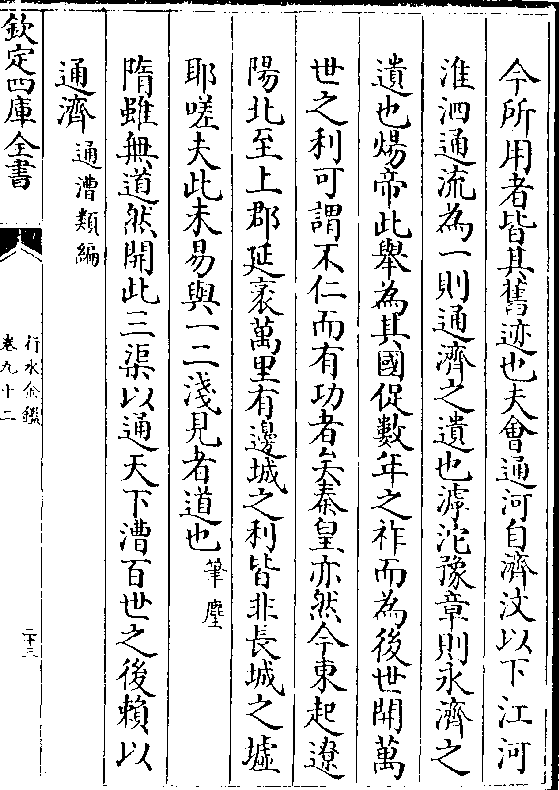 今所用者皆其舊迹也夫會通河自濟汶以下江河
淮泗通流為一則通濟之遺也滹沱豫章則永濟之
遺也煬帝此舉為其國促數年之祚而為後世開萬
世之利可謂不仁而有功者矣秦皇亦然今東起遼
陽北至上郡延袤萬里有邊城之利皆非長城之墟
耶嗟夫此未易與一二淺見者道也筆麈
隋雖無道然開此三渠以通天下漕百世之後賴以
通濟通漕類編
欽定四庫全書
行水金鑑
卷九十二
二十三